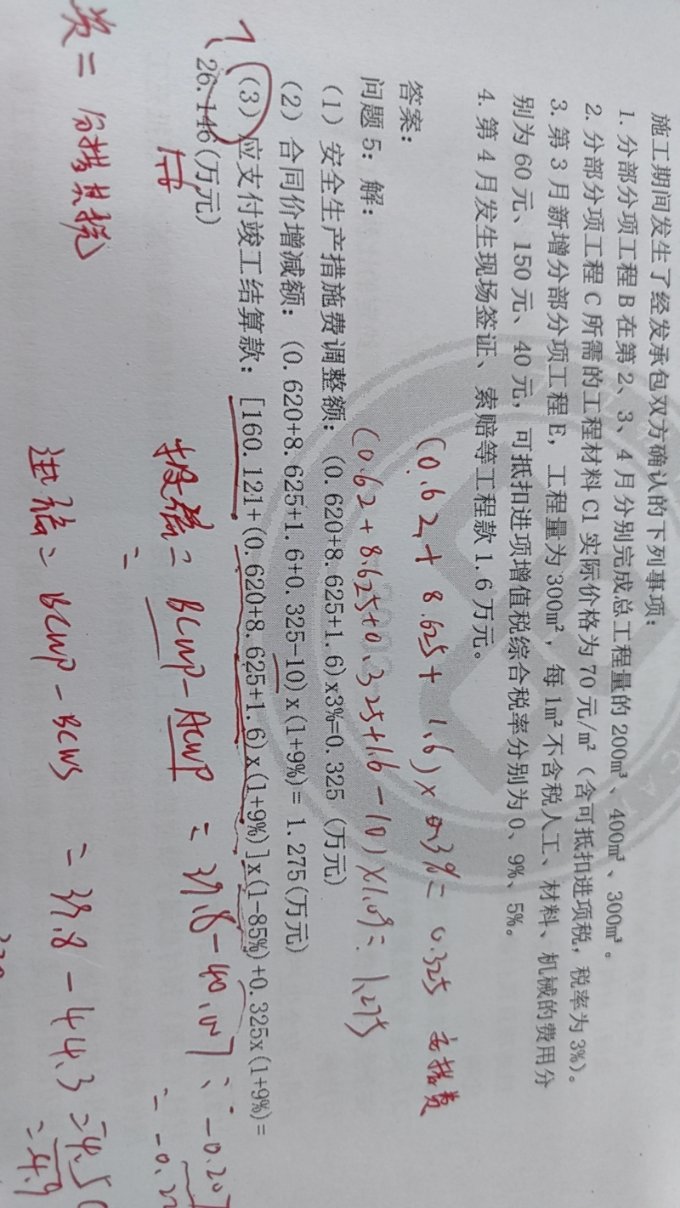 施工期间发生了经发承包双方确认的下列事项：
1. 分部分项工程 B 在第 2、3、4 月分别完成总工程量的 200m³、400m³、300m³。
2. 分部分项工程 C 所需的工程材料 C1 实际价格为 70 元/m²（含可抵扣进项税，税率为 3%）。
3. 第 3 月新增分部分项工程 E，工程量为 300m²，每 1m² 不含税人工、材料、机械的费用分
别为 60 元、150 元、40 元，可抵扣进项增值税综合税率分别为 0、9%、5%。
4. 第 4 月发生现场签证、索赔等工程款 1.6 万元。
(0.62+8.625+1.6)×3%=0.325
答案：
(0.62+8.625+0.325+1.6-10)×1.09=1.275
问题 5：解：
（1）安全生产措施费调整额：(0.620+8.625+1.6)x3%=0.325（万元）
（2）合同价增减额：(0.620+8.625+1.6+0.325-10)x(1+9%)=1.275(万元)
（3）应支付竣工结算款：[160.121+(0.620+8.625+1.6)x(1+9%)]x(1-85%)+0.325x(1+9%)=
26.146(万元)
投偏=BCWP-ACWP=39.8-40.07=-0.207
=
进偏=BCWP-BCWS=39.8-44.3=-4.5
=4.9